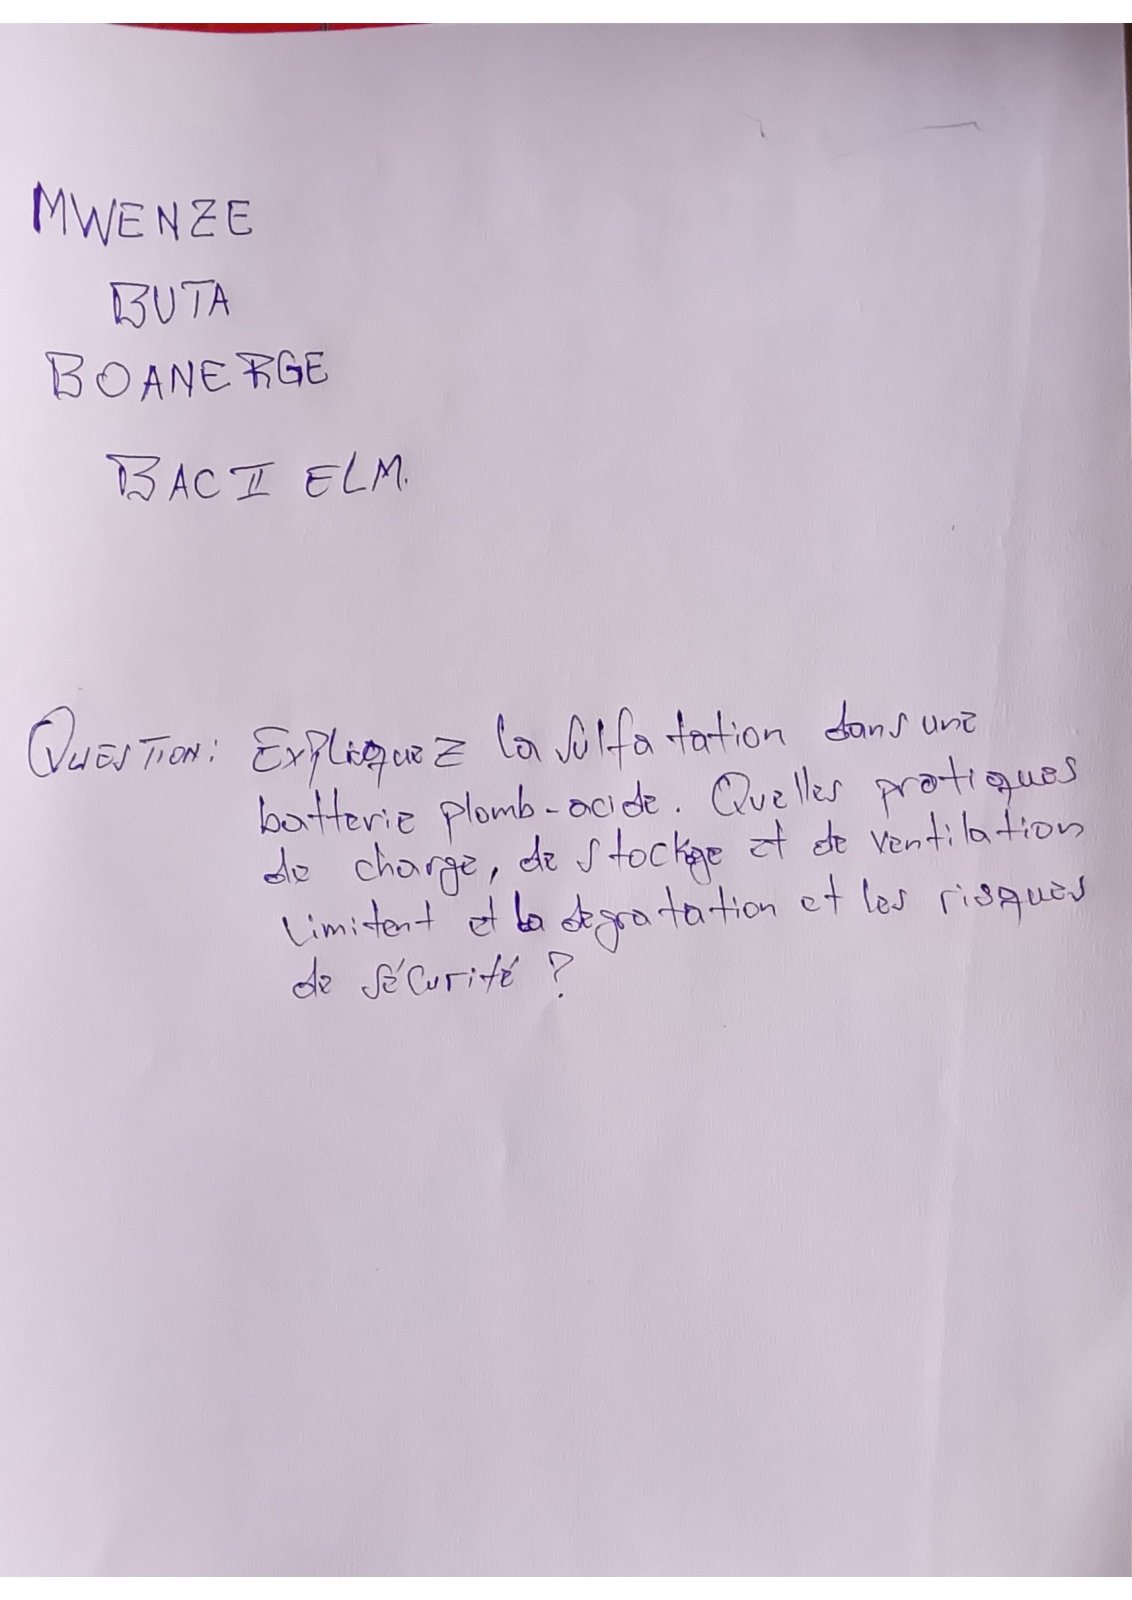 MWENZE
BUTA
BOANERGE
BAC II ELM.
QUESTION: Expliquez la sulfatation dans une
batterie plomb-acide. Quelles pratiques
de charge, de stockge et de ventilation
limitent et la degratation et les risques
de sécurité ?